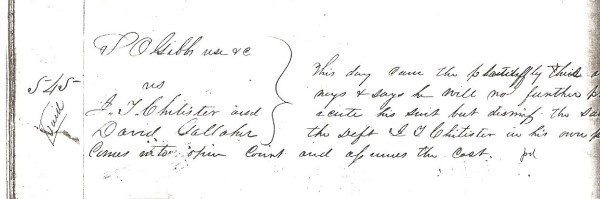 P O Gibbs use &c
545
vs
Paid
J. T Chitister and
David Gallaher
This day came the plaintiff by
neys & says he will no further p
ecute his suit but dismiss the sa
the Deft J T Chitister in his own p
Comes into open Court and assumes the cost.